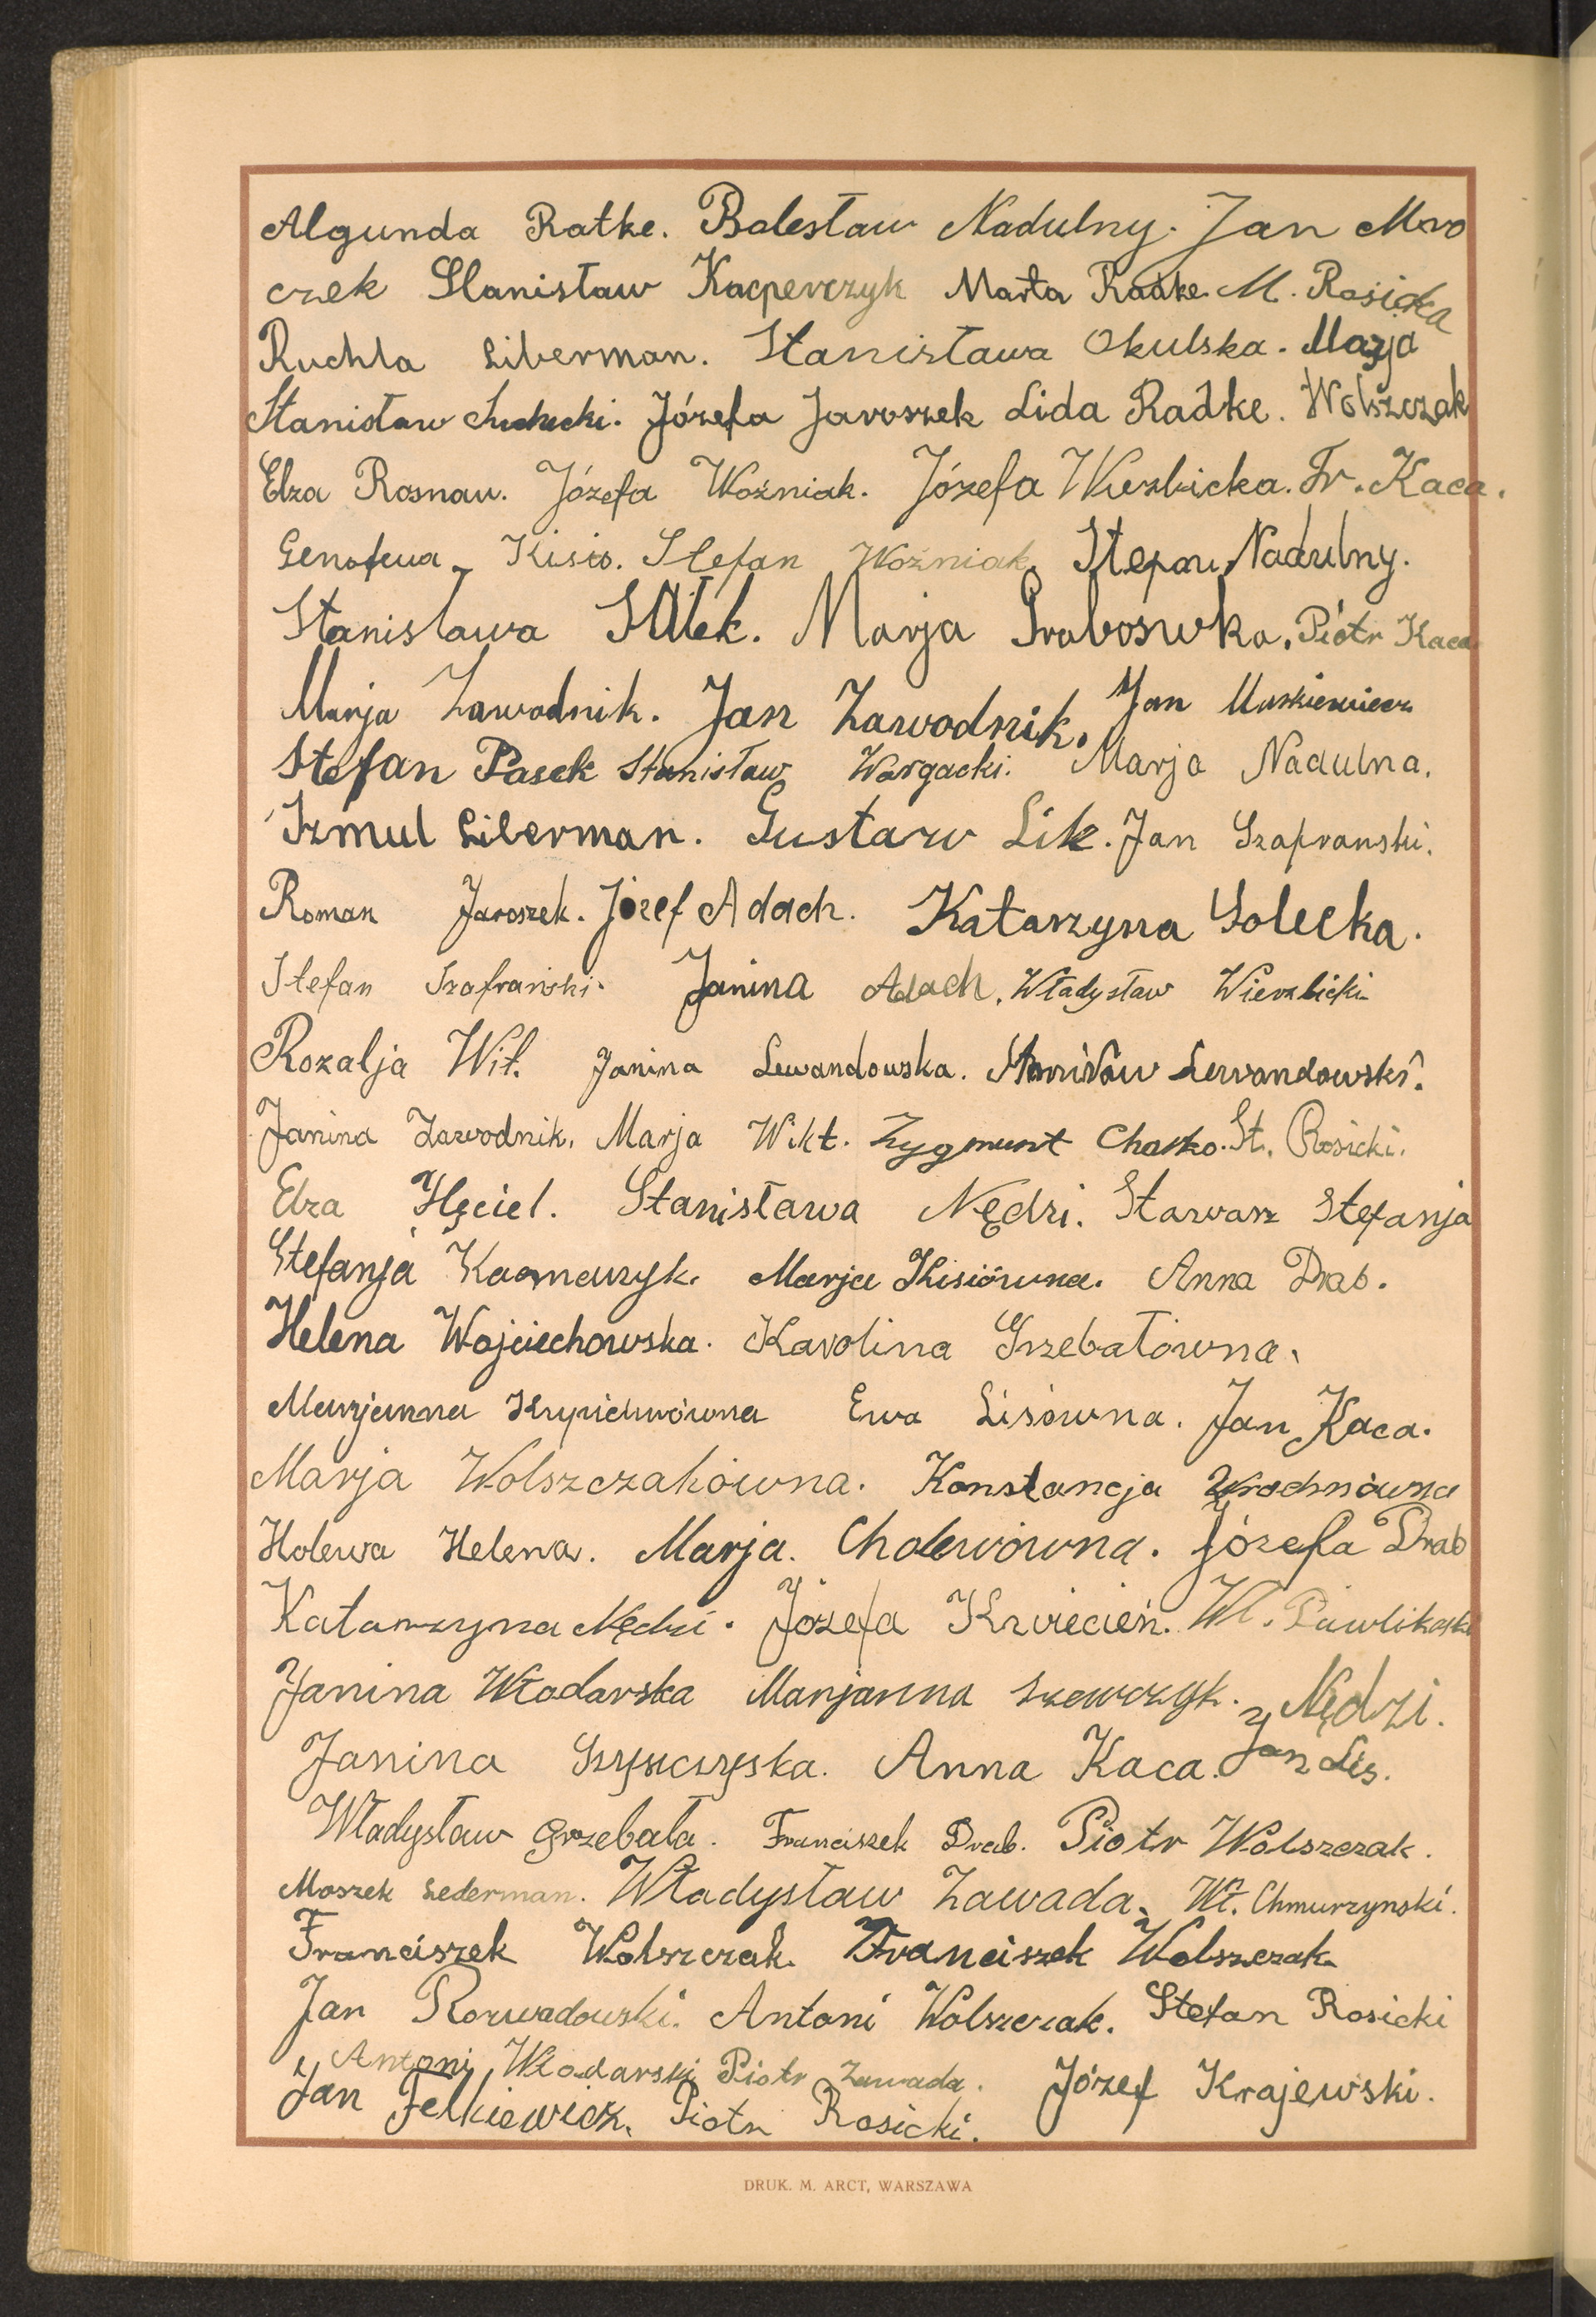 Algunda Ratke. Bolesław Nadulny. Jan Mro
czek Stanisław Kacperczyk Marta Radke M. Rosicka
Ruchla Liberman. Stanisława Okulska. Marja
Stanisław Suchecki. Józefa Jaroszek Lida Radke. Wolszczak
Elza Rosnau. Józefa Woźniak. Józefa Wierzbicka. Fr. Kaca.
Genofewa Kisio. Stefan Woźniak. Stefan Nadulny.
Stanisława Marja Piotr Kaca
Marja Zawodnik. Jan Zawodnik. Jan
Stefan Pasek Stanisław Wargacki. Marja Nadulna.
Szmul Liberman. Gustaw Lik. Jan Szafranski.
Roman Jaroszek. Józef Adach. Katarzyna Solecka.
Stefan Szafrański. Janina Adach. Władysław Wierzbicki
Rozalja Wit. Janina Lewandowska. Stanisław Lewandowski.
Janina Zawodnik. Marja Wikt. Zygmunt Chasko. St. Rosicki.
Elza Stanisława Nędzi. Stawarz Stefanja
Stefanja Marja Kisiówna. Anna Drab.
Helena Wojciechowska. Karolina Grzebałówna.
Marjanna Ewa Lisówna. Jan Kaca.
Marja Wolszczakówna. Konstancja
Holewa Helena. Marja. Cholewówna. Józefa Drab
Katarzyna Nędzi. Józefa Kwiecień. Wł.
Janina Włodarska Marjanna Szewczyk. Nędzi.
Janina Anna Kaca. Jan Lis.
Władysław Grzebała. Franciszek Drab. Piotr Wolszczak.
Moszek Lederman. Władysław Zawada. Wł. Chmurzynski.
Franciszek Wolszczak. Franciszek Wolszczak.
Jan Rozwadowski. Antoni Wolszczak. Stefan Rosicki
Antoni Włodarski Piotr Zawada. Józef Krajewski.
Jan Felkiewicz. Piotr Rosicki.
DRUK. M. ARCT, WARSZAWA